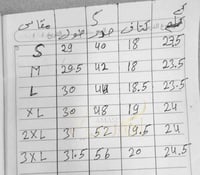 5
مقاس طول صدر كتاف كم
S 29 40 18 23.5
M 29.5 42 18 23.5
L 30 44 18.5 23.5
XL 30 48 19 24
2XL 31 52 19.5 24
3XL 31.5 56 20 24.5